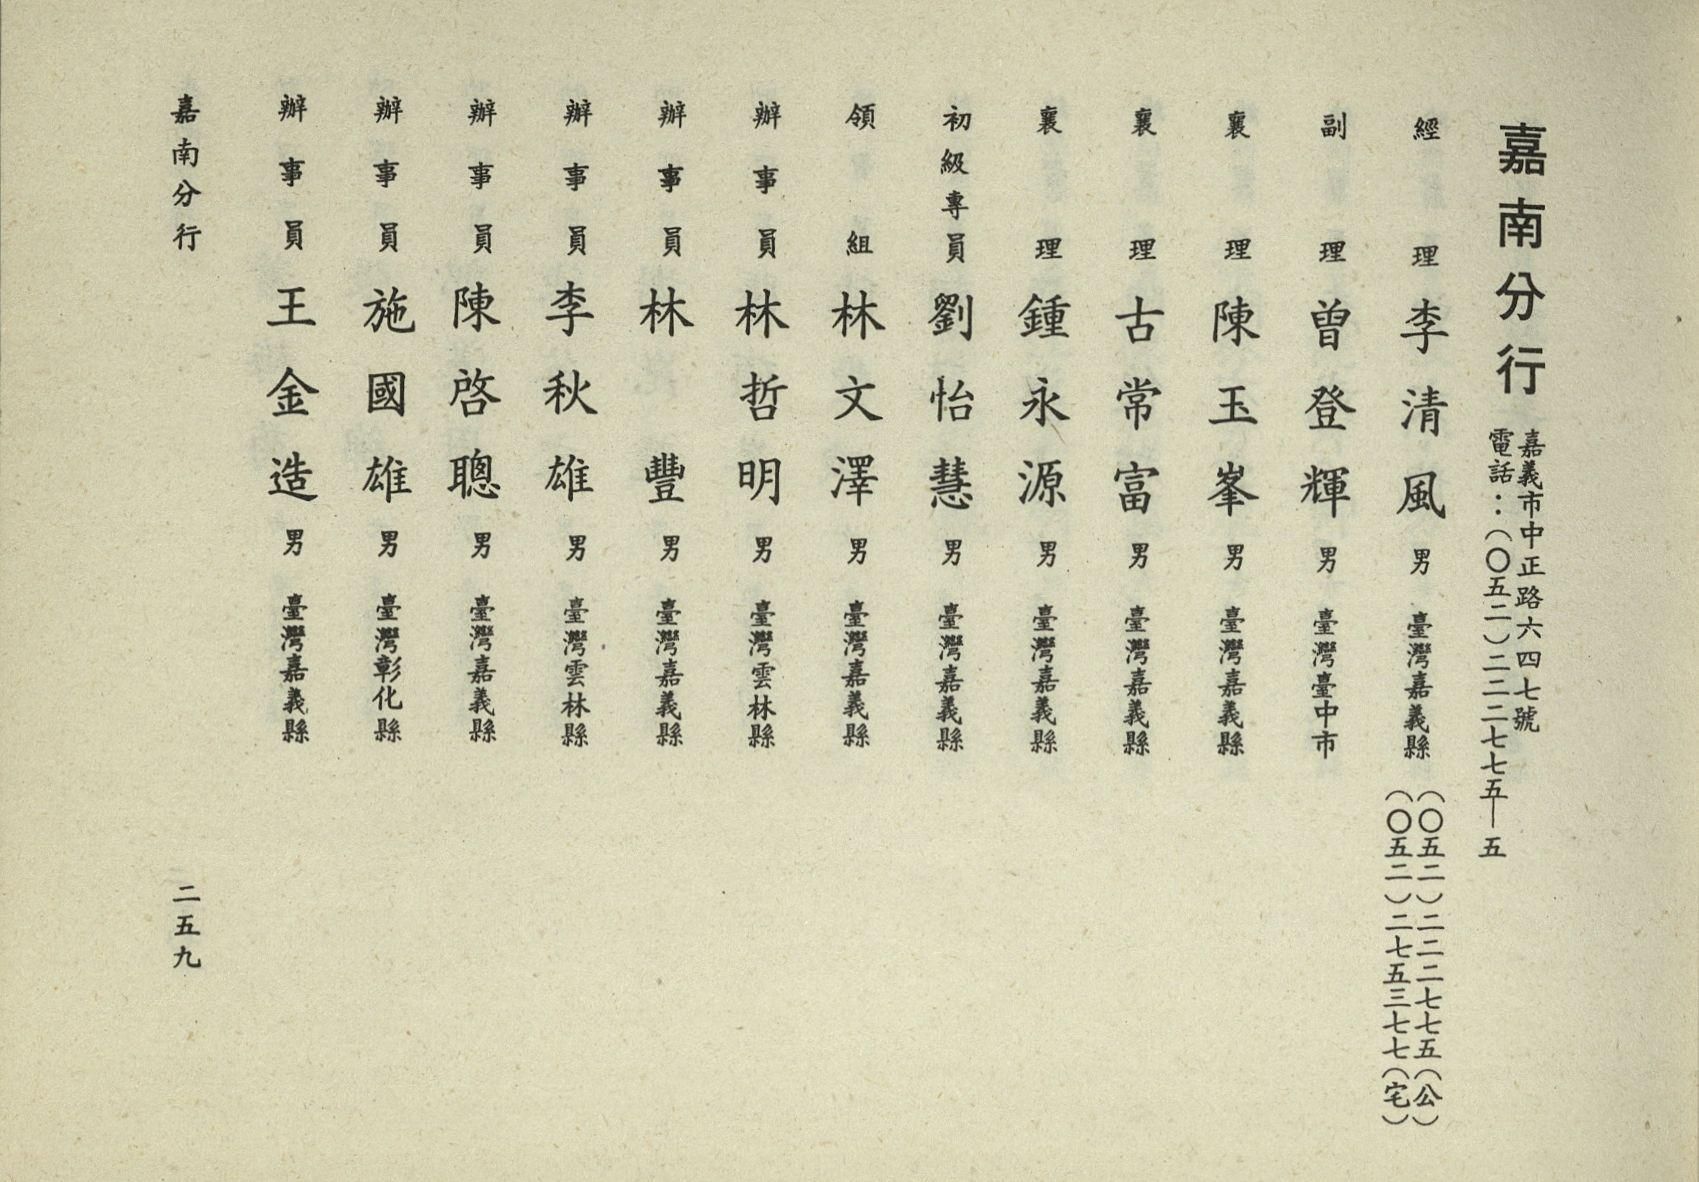 嘉南分行
嘉義市中正路六四七號
電話：(〇五二)二二二七七五—五
經理 李清風 男 臺灣嘉義縣
(〇五二)二二二七七五(公)
(〇五二)二七五三七七(宅)
副理 曾登輝 男 臺灣臺中市
襄理 陳玉峯 男 臺灣嘉義縣
襄理 古常富 男 臺灣嘉義縣
襄理 鍾永源 男 臺灣嘉義縣
初級專員 劉怡慧 男 臺灣嘉義縣
領組 林文澤 男 臺灣嘉義縣
辦事員 林哲明 男 臺灣雲林縣
辦事員 林豐 男 臺灣嘉義縣
辦事員 李秋雄 男 臺灣雲林縣
辦事員 陳啓聰 男 臺灣嘉義縣
辦事員 施國雄 男 臺灣彰化縣
辦事員 王金造 男 臺灣嘉義縣
嘉南分行
二五九